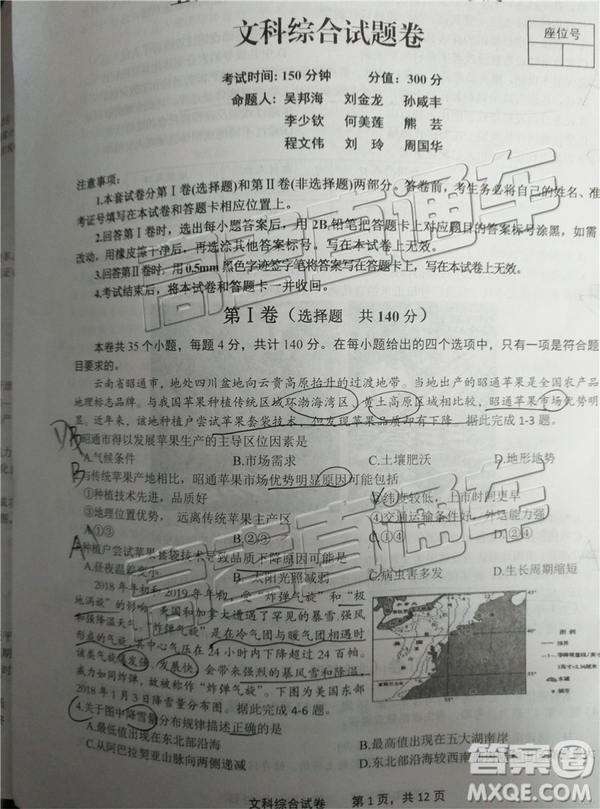 文科综合试题卷
座位号
考试时间：150分钟 分值：300分
命题人：吴邦海 刘金龙 孙咸丰
李少钦 何美莲 熊芸
程文伟 刘玲 周国华
注意事项：
1.本套试卷分第Ⅰ卷(选择题)和第Ⅱ卷(非选择题)两部分。答卷前，考生务必将自己的姓名、准
考证号填写在本试卷和答题卡相应位置上。
2.回答第Ⅰ卷时，选出每小题答案后，用2B铅笔把答题卡上对应题目的答案标号涂黑，如需
改动，用橡皮擦干净后，再选涂其他答案标号。写在本试卷上无效。
3.回答第Ⅱ卷时，用0.5mm黑色字迹签字笔将答案写在答题卡上，写在本试卷上无效。
4.考试结束后，将本试卷和答题卡一并收回。
第Ⅰ卷（选择题 共140分）
本卷共35个小题，每题4分，共计140分。在每小题给出的四个选项中，只有一项是符合题
目要求的。
云南省昭通市，地处四川盆地向云贵高原抬升的过渡地带。当地出产的昭通苹果是全国农产品
地理标志品牌。与我国苹果种植传统区域环渤海湾区、黄土高原区域相比较，昭通苹果市场优势明
显。近年来，该地种植户尝试苹果套袋技术，但发现苹果品质却有下降。据此完成1-3题。
昭通市得以发展苹果生产的主导区位因素是
A.气候条件 B.市场需求 C.土壤肥沃 D.地形地势
B
与传统苹果产地相比，昭通苹果市场优势明显原因可能包括
①种植技术先进，品质好 ②纬度较低，上市时间更早
③地理位置优势，远离传统苹果主产区 ④交通运输条件好，外运能力强
A.①③ B.②③ C.②④ D.①④
A
种植户尝试苹果套袋技术导致品质下降原因可能是
A.昼夜温差变小 B.太阳光照减弱 C.病虫害多发 D.生长周期缩短
2018年年初和2019年年初，受“炸弹气旋”和“极
地涡旋”的影响，美国和加拿大遭遇了罕见的暴雪、强风
和强降温天气。“炸弹气旋”是在冷气团与暖气团相遇时
形成的气旋，其中心气压在24小时内下降超过24百帕，
该类气旋发展快，会带来强烈的暴风雪和降温，
威力如同炸弹，故被称作“炸弹气旋”。下图为美国东部
2018年1月3日降雪量分布图。据此完成4-6题。
图例
4.关于图中降雪量分布规律描述正确的是
A.最低值出现在东北部沿海 B.最高值出现在五大湖南岸
C.从阿巴拉契亚山脉向两侧递减 D.东北部沿海较西南
文科综合试卷 第1页，共12页
高考直通车
高考直通车
答案圈